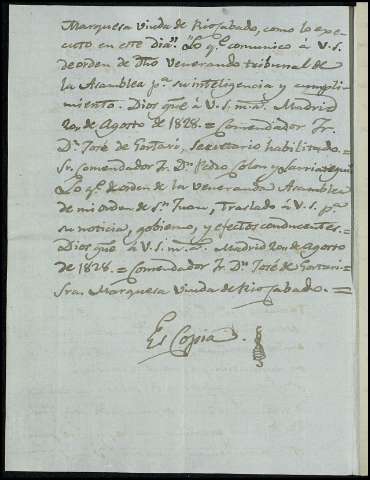 Marquesa viuda de Rio sabado, como lo exe-
cuto en este dia". "Lo q.e comunico à V.S.
de orden de dho Venerando tribunal de
la Asamblea p.a su inteligencia y cumpli-
miento. Dios gue. à V.S. m.s a.s Madrid
de Agosto de 1828. = Comendador Fr.
D.n José de Gaztari, Secretario habilitado. =
Sr. Comendador Fr. D.n Pedro Colon y Larriategui
Lo q.e de orden de la Veneranda Asamblea
de mi orden de S.n Juan, traslado à V.S. p.a
su noticia, gobierno, y efectos conducentes. =
Dios gue. à V.S. m.s a.s Madrid de Agosto
de 1828. = Comendador Fr. D.n José de Gaztari =
Sra. Marquesa Viuda de Rio sabado. =
Es Copia.